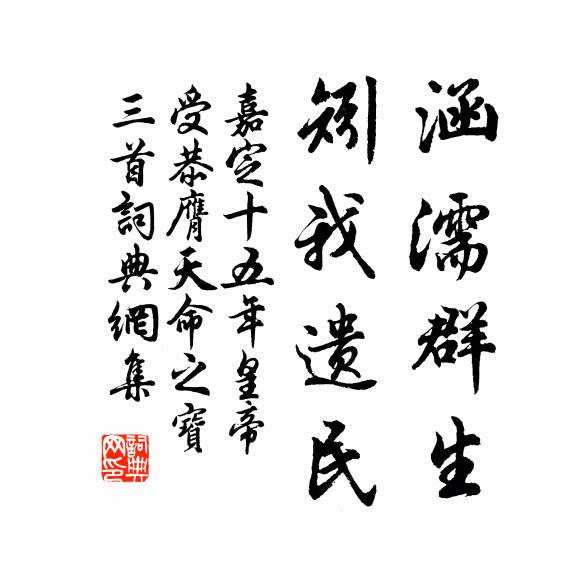 涵濡群生
矧我遗民
嘉定十五年皇帝
受恭膺天命之寶
三首詞典網集
詞典网印